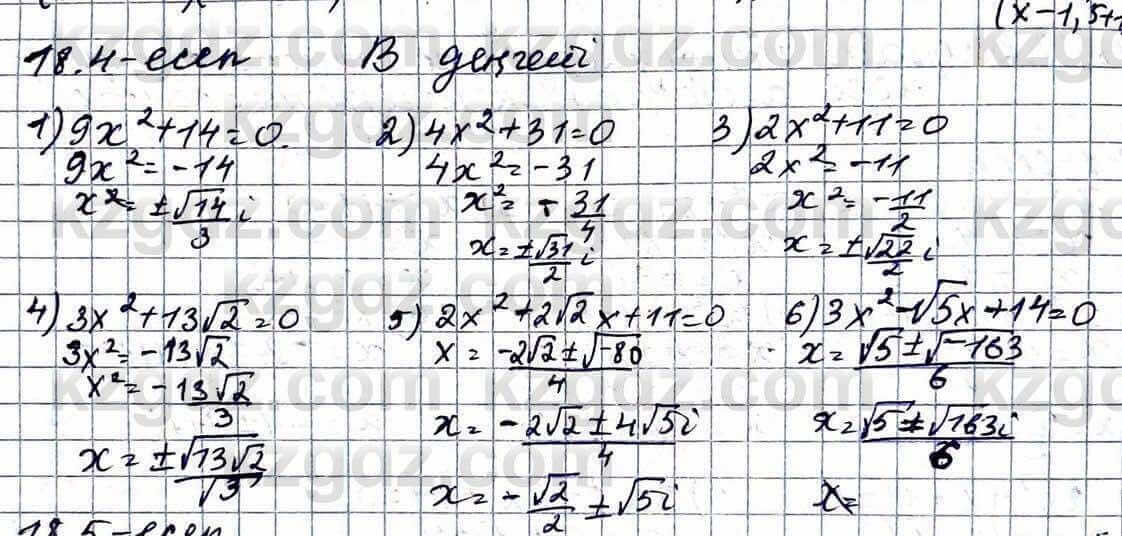 (x-1,5+1
18.4-есеп В деңгей
1) 9x²+14=0.
9x²=-14
x²= ±√14/3 i
2) 4x²+31=0
4x²=-31
x²= -31/4
x=±√31/2 i
3) 2x²+11=0
2x²=-11
x²=-11/2
x=±√22/2 i
4) 3x²+13√2=0
3x²=-13√2
x²=-13√2/3
x=±√13√2/√3
5) 2x²+2√2x+11=0
x = -2√2±√-80/4
x= -2√2±4√5i/4
x= -√2/2 ±√5i
6) 3x²-√5x+14=0
x= √5±√-163/6
x=√5±√163i/6
x=
18.5-есеп
kzgdz.com